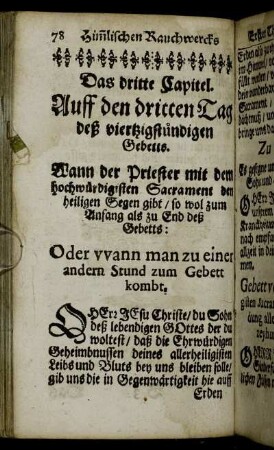 78 Him̃lischen Rauchwercks
Das dritte Capitel.
Auff den dritten Tag
deß viertzigstündigen
Gebetts.
Wann der Priester mit dem
hochwürdigsten Sacrament den
heiligen Segen gibt / so wol zum
Anfang als zu End deß
Gebetts:
Oder vvann man zu einer
andern Stund zum Gebett
kombt.
O HErꝛ JEsu Christe / du Sohn
deß lebendigen GOttes der du
woltest / daß die Ehrwürdigen
Geheimbnussen deines allerheiligisten
Leibs und Bluts bey uns bleiben solle /
gib uns die in Gegenwärtigkeit hie auff
Erden